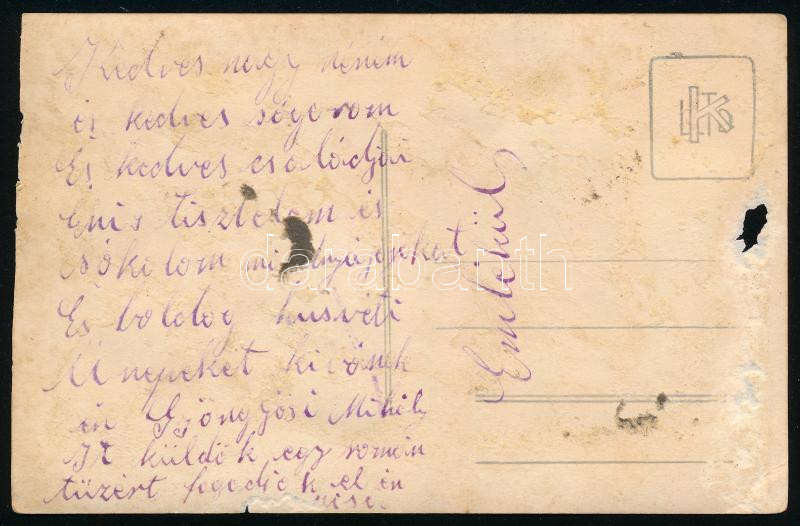 Kedves nagy néném
és kedves sógorom
És kedves családjai
Énis tisztelem és
sókolom mindnyájonkat
És boldog húsvéti
Ünnepeket kivánok
én Gyöngyösi Mihály
It küldök egy román
tüzért fogadják el én
Emlékül
LITKO
darabanth